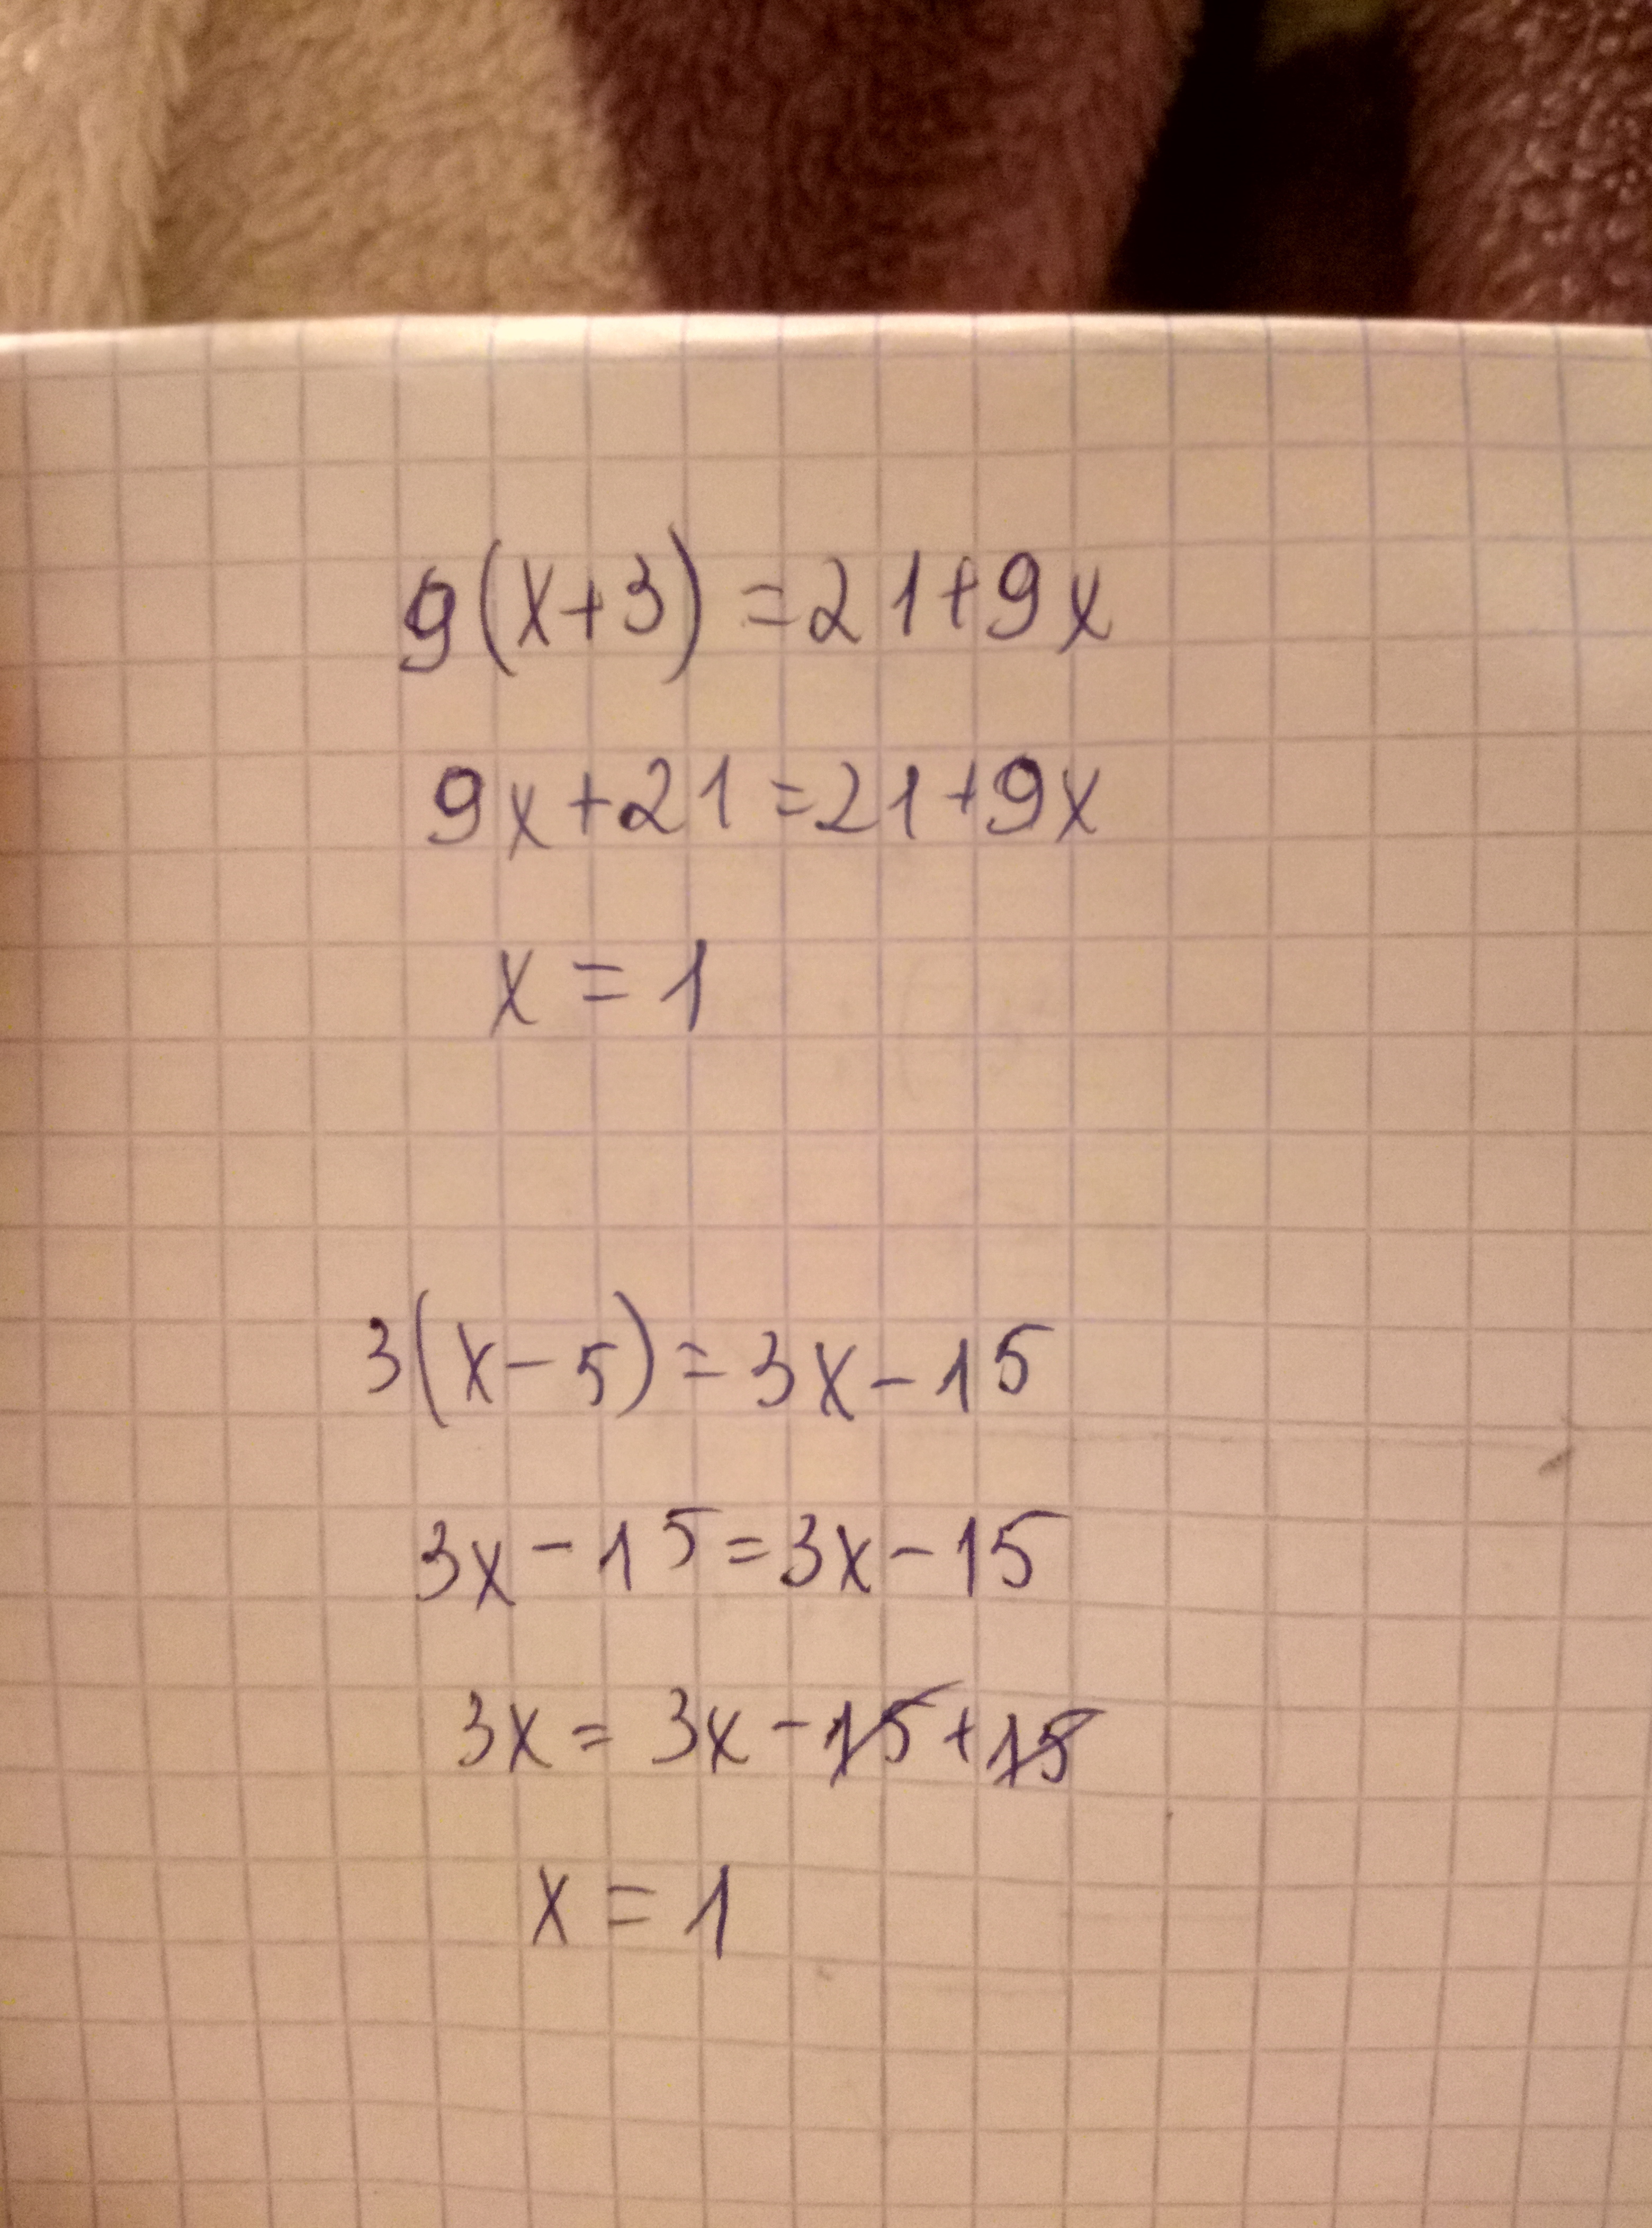 9(x+3)=21+9x
9x+21=21+9x
x=1
3(x-5)=3x-15
3x-15=3x-15
3x=3x-15+15
x=1